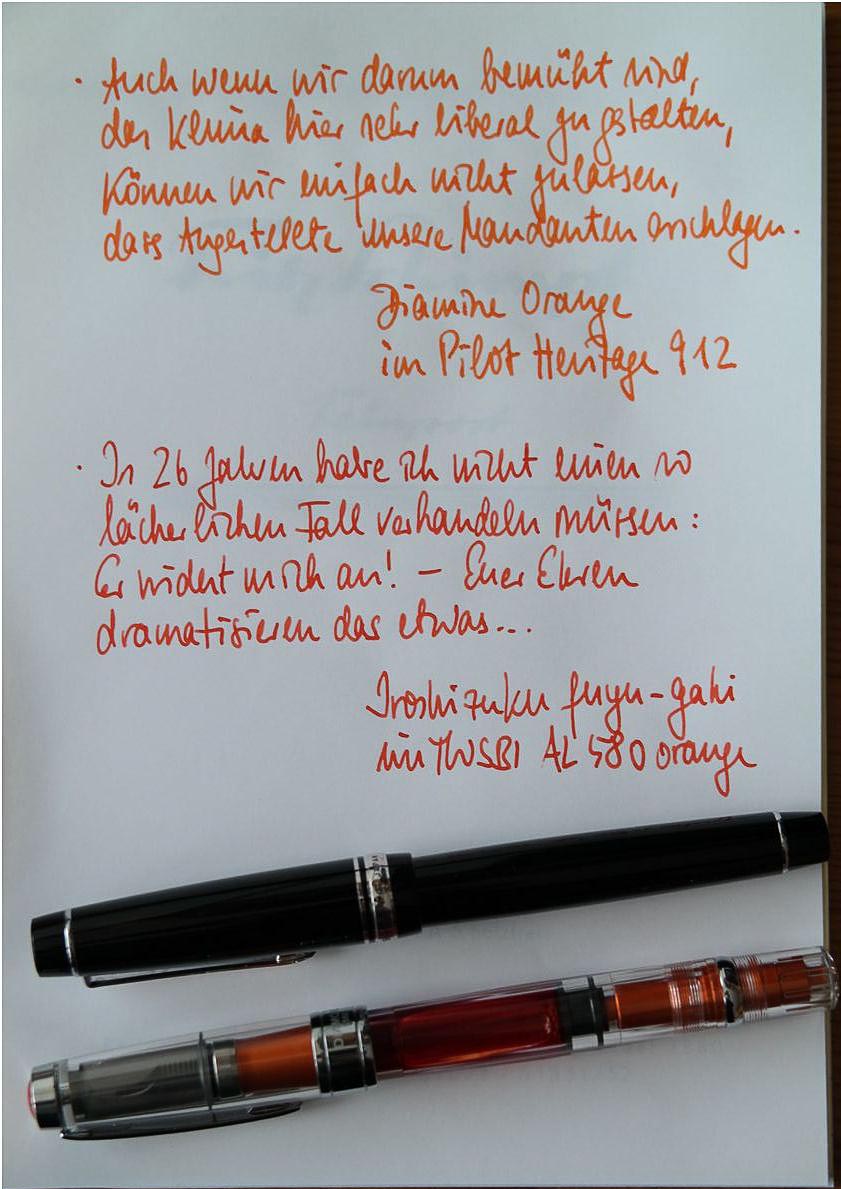 · Auch wenn wir darum bemüht sind,
das Klima hier sehr liberal zu gestalten,
können wir einfach nicht zulassen,
dass Angestellte unsere Mandanten erschlagen.
Diamine Orange
im Pilot Heritage 912
· In 26 Jahren habe ich nicht einen so
lächerlichen Fall verhandeln müssen:
Er widert mich an! – Euer Ehren
dramatisieren das etwas...
Iroshizuku fuyu-gaki
im TWSBI AL 580 orange